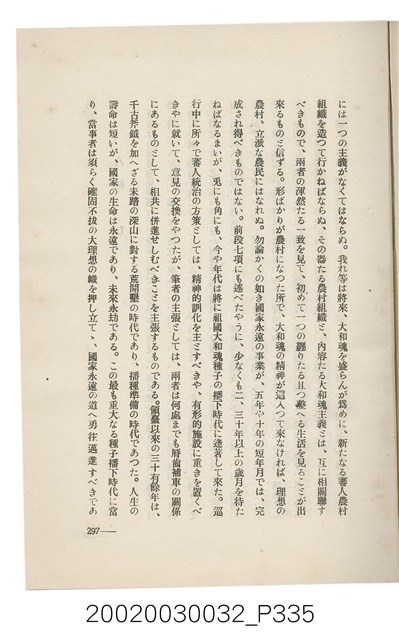 には一つの主義がなくてはならぬ。我れ等は將來、大和魂を盛らんが爲めに、新たなる蕃人農村
組織を造つて行かねばならぬ、その器たる農村組織と、内容たる大和魂主義とは、互に相關聯す
べきもので、兩者の渾然たる一致を見て、初めて一つの纒りたる且つ整へる生活を見ることが出
來るものと信ずる。形ばかりが農村になつた所で、大和魂の精神が這入つて來なければ、理想の
農村、立派な農民にはなれぬ。勿論かくの如き國家永遠の事業が、五年や十年の短年月では、完
成され得べきものではない。前段七項にも述べたやうに、少なくも二、三十年以上の歲月を待た
ねばなるまいが、兎にも角にも、今や年代は將に祖國大和魂種子の播下時代に逢著して來た。巡
行中に所々で蕃人統治の方策としては、精神的訓化を主とすべきや、有形的施設に重きを置くべ
きやに就いて、意見の交換をやつたが、筆者の主張としては、兩者は何處までも脣齒補車の關係
にあるものとして、相共に併進せしむべきことを主張するものである。領臺以來の三十有餘年は、
千古斧鉞を加へざる未踏の深山に對する荒開墾の時代であり、播種準備の時代であつた。人生の
壽命は短いが、國家の生命は永遠であり、未來永劫である。この最も重大なる種子播下時代に當
り、當事者は須らく確固不拔の大理想の幟を押し立てゝ、國家永遠の道へ勇往邁進すべきであ
297
20020030032_P335